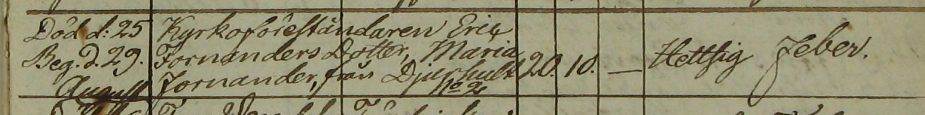 Död d. 25 Kyrkoföreståndaren Eric
Beg. d. 29. Fornanders Dotter, Maria 20. 10. — Hettsig Feber.
August Fornander, från Djurhult
No 2